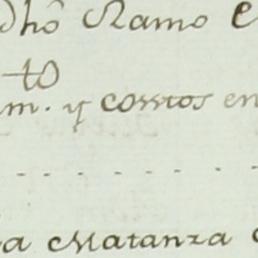 dhõ Ramo e
to
m. y costos en
a Matanza